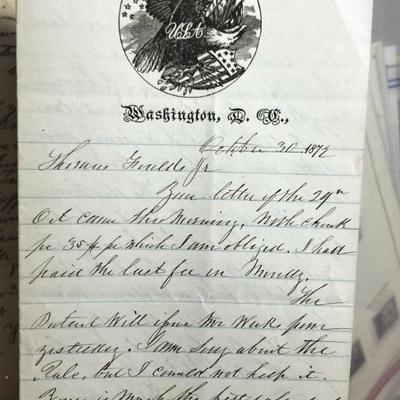 USA
Washington, D. C.,
October 30 1872
Thomas Foulds Jr
Your letter of the 29th
Oct came this morning, with check
for 35 $ for which I am obliged. I had
paid the last fee on Monday.
The
Patent Will issue two Week from
yesterday. I am sorry about the
Rule, but I could not help it.
is much the